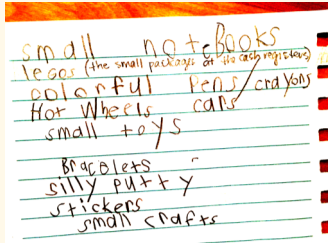 small notebooks
legos (the small packages at the cash registers)
colorful pens/crayons
Hot Wheels cars
small toys
Bracelets
silly putty
stickers
small crafts